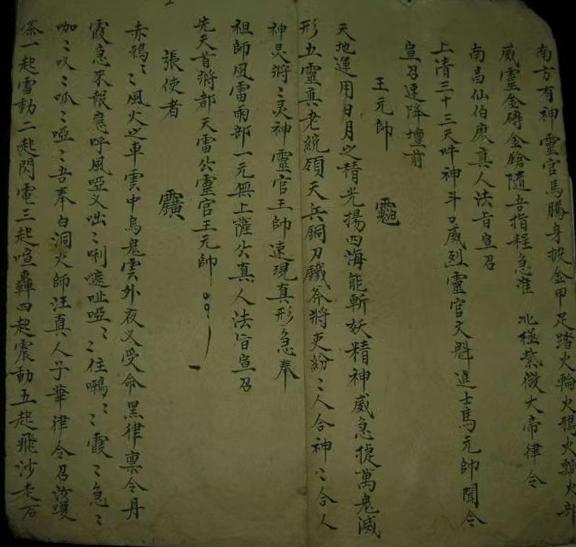 南方有神靈官馬騰身披金甲足踏火輪火鴉火輪火部
威靈金磚金鎗隨吾指程急准 北極紫微大帝律令
南昌仙伯庾真人法旨宣召
上清三十三天吽神斗口威烈靈官文魁進士馬元帥聞令
宣召速降壇前
王元帥
天地運用日月之精光揚四海能斬妖精神威急捉萬鬼滅
形五靈真老統領天兵銅刀鐵斧將吏紛〻人合神〻合人
神灵將〻灵神靈官王帥速現真形急奉
祖師風雷雨部一元無上薩公真人法旨宣召
先天首將都天雷公靈官王元帥
張使者
赤鴉〻〻風火之車雲中烏鬼雲外夜叉受命黑律禀令丹
霞急來報應呼風啞义咄〻唎 啞〻〻住 〻〻霞〻急〻
〻〻〻啞〻吾奉白洞火師汪真人子華律令召
一起雪動二起閃電三起喧轟四起震動五起飛沙走石